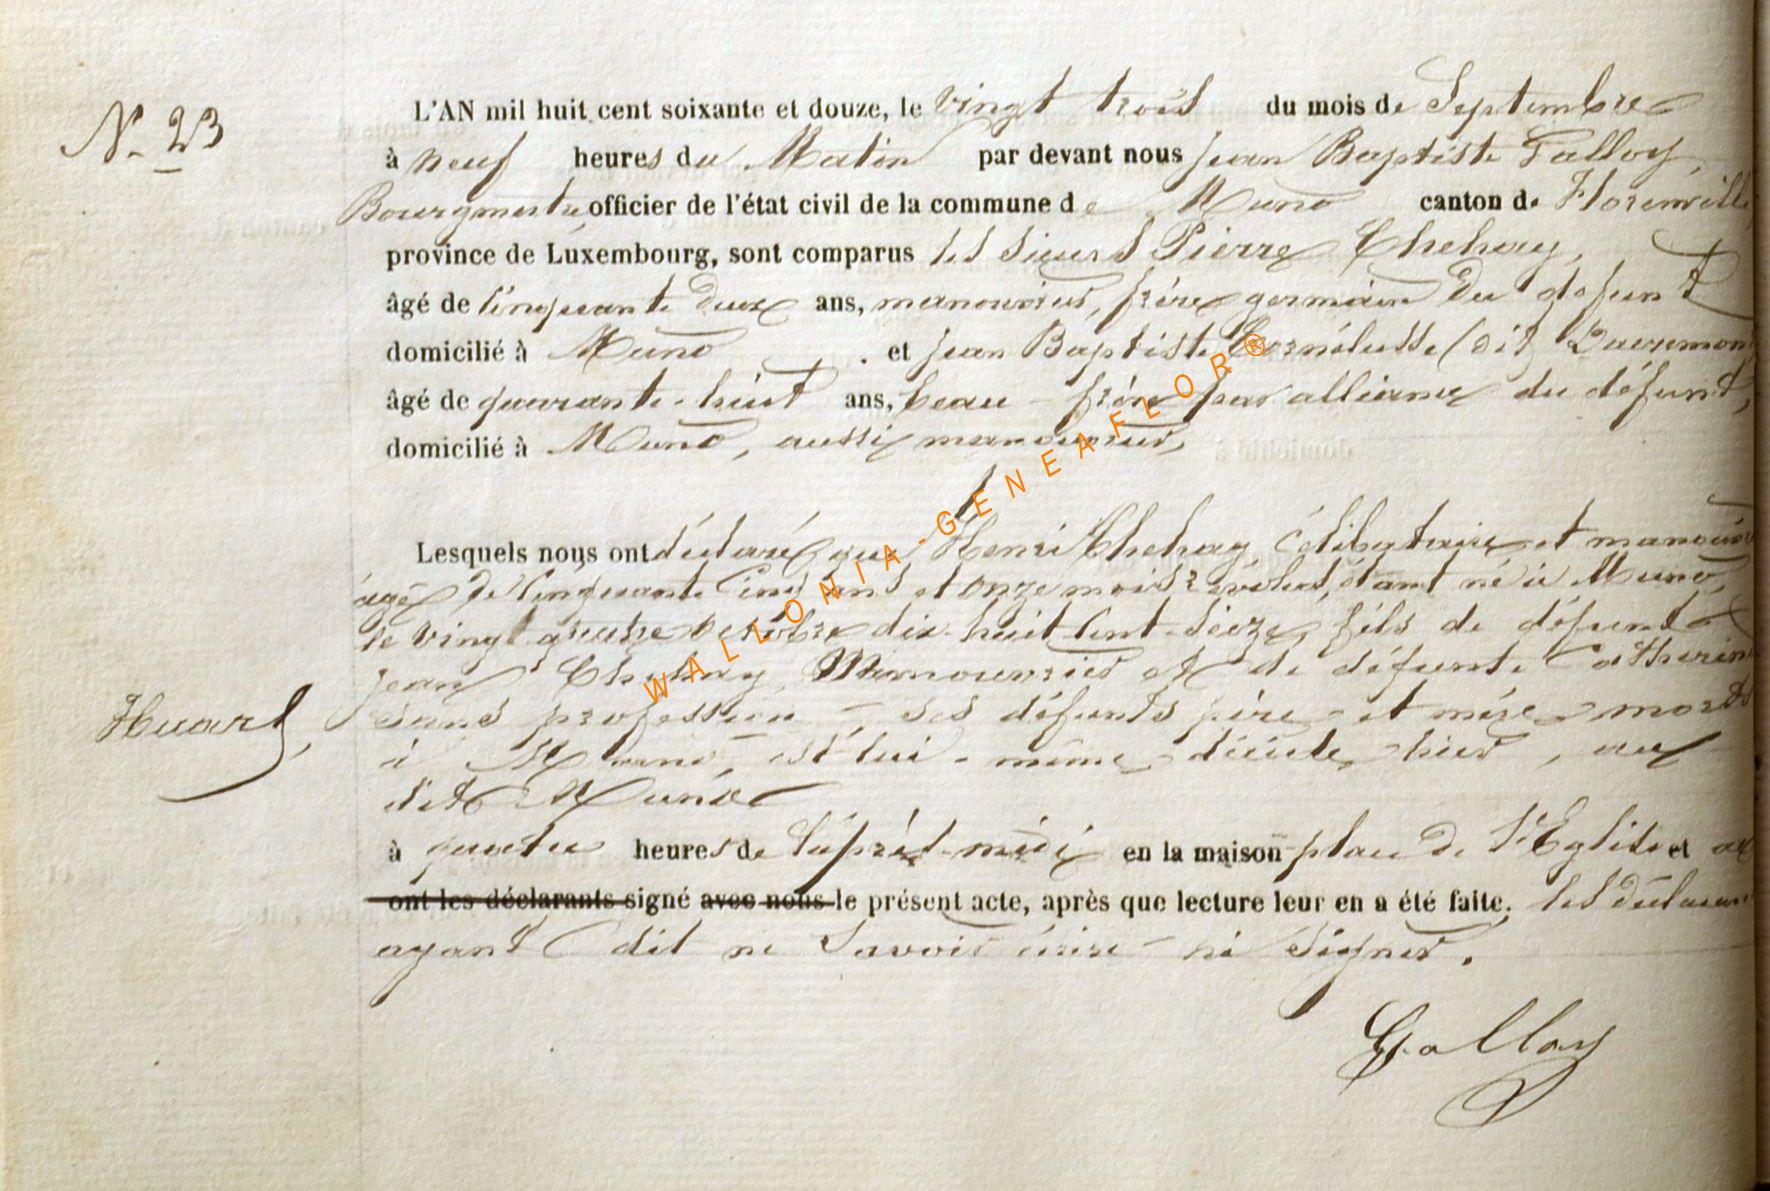 N.° 23
L'AN mil huit cent soixante et douze, le vingt trois du mois de Septembre
à neuf heures du Matin par devant nous Jean Baptiste Galloy
Bourgmestre, officier de l'état civil de la commune de Muno canton de Florenville
province de Luxembourg, sont comparus les Sieurs Pierre Chehay,
âgé de cinquante deux ans, manouvrier, frère germain du défunt
domicilié à Muno et Jean Baptiste Cornélusse (dit)
âgé de quarante-huit ans, beau-frère par alliance du défunt,
domicilié à Muno, aussi manouvrier,
Lesquels nous ont déclaré que Henri Chehay, Célibataire et manouvrier
âgé de cinquante cinq ans et onze mois révolus, étant né à Muno,
le vingt quatre octobre dix-huit cent-seize, fils de défunt
Jean Chehay, Manouvrier et de défunte Catherine
Huart,
sans profession - ses défunts père et mère morts
à Muno, est lui-même décédé hier, au
dit Muno
à quatre heures de l'après-midi en la maison place de l'Eglise et
ont les déclarants signé avec nous le présent acte, après que lecture leur en a été faite. les déclarants
ayant dit ne savoir écrire ni signer.
Galloy
WALLONIA-GENEAFLOR®